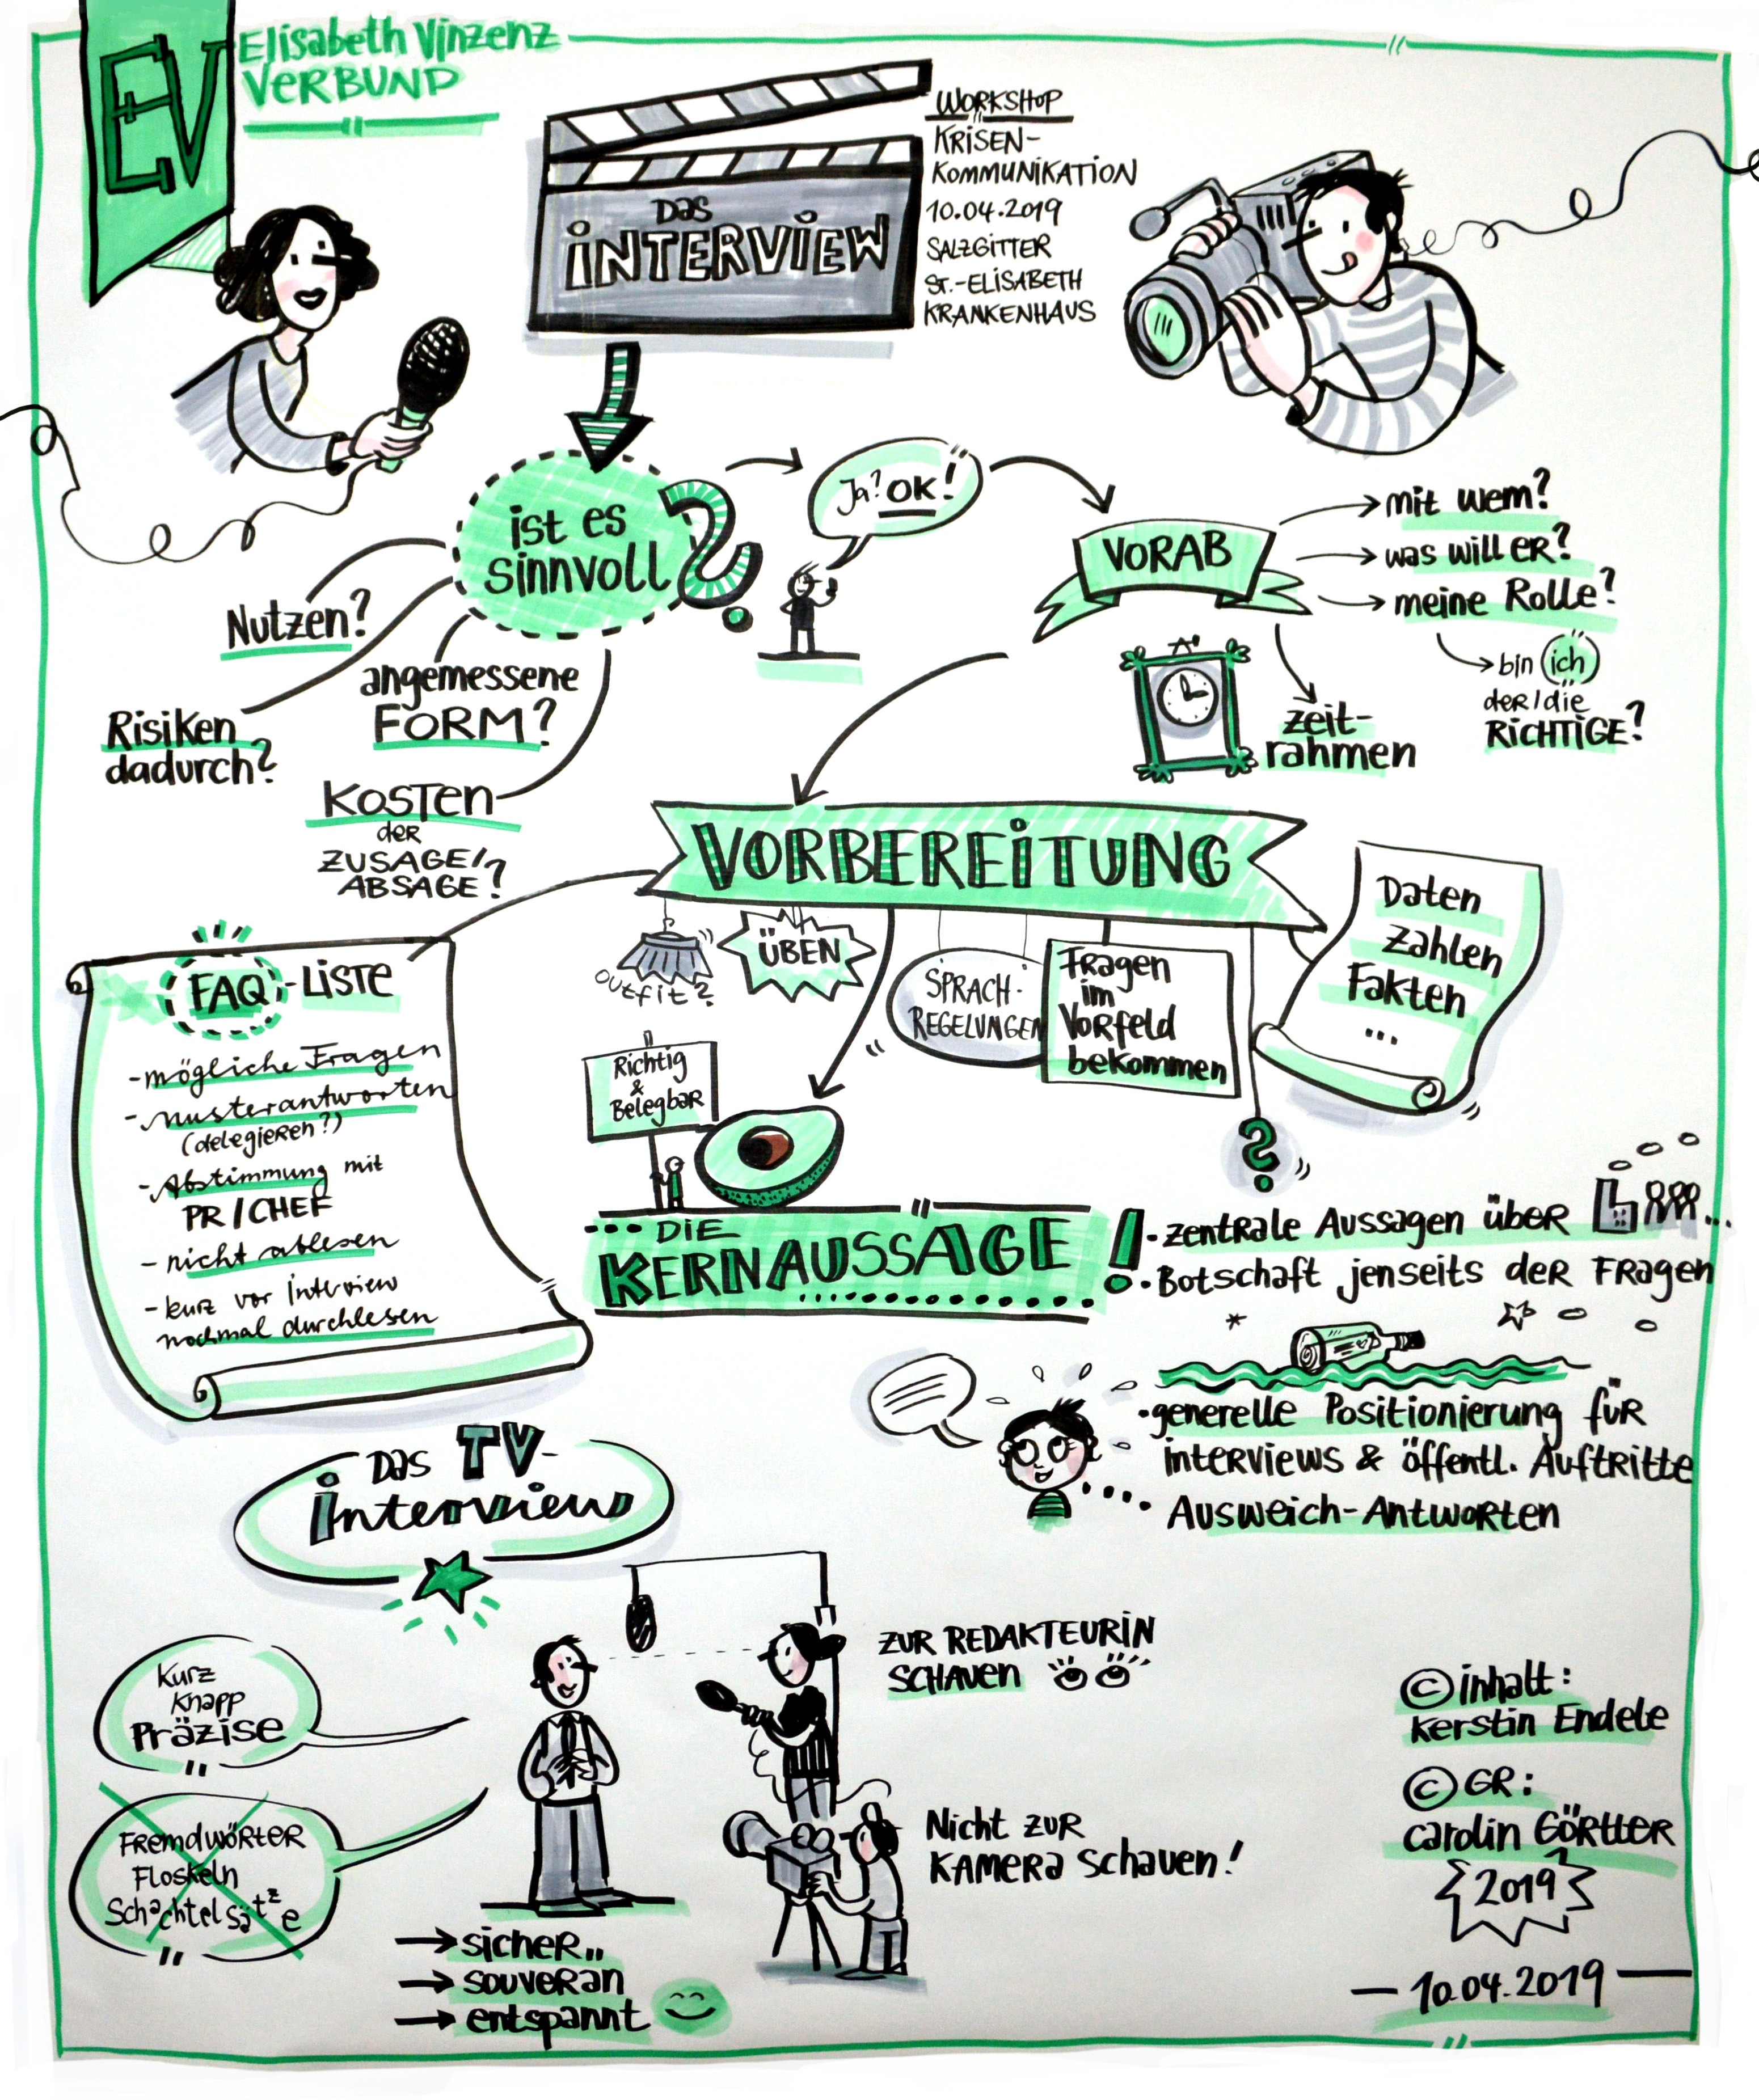 EV
Elisabeth Vinzenz
VERBUND
DAS
INTERVIEW
WORKSHOP
KRISEN-
KOMMUNIKATION
10.04.2019
SALZGITTER
ST.-ELISABETH
KRANKENHAUS
ist es
sinnvoll ?
Ja? OK!
Nutzen?
Risiken
dadurch?
angemessene
FORM?
KOSTEN
der
ZUSAGE/
ABSAGE?
VORAB
mit wem?
was will ER?
meine Rolle?
bin ich
der/die
RICHTIGE?
zeit-
rahmen
VORBEREITUNG
outfit?
ÜBEN
SPRACH-
REGELUNGEN
Fragen
im
Vorfeld
bekommen
Daten
Zahlen
Fakten
...
?
FAQ-LISTE
- mögliche Fragen
- Musterantworten
(delegieren?)
- Abstimmung mit
PR/CHEF
- nicht ablesen
- kurz vor Interview
nochmal durchlesen
Richtig
&
Belegbar
DIE
KERNAUSSAGE!
· zentrale Aussagen über ...
· Botschaft jenseits der Fragen
· generelle Positionierung für
interviews & öffentl. Auftritte
Ausweich-Antworten
Das TV-
interview
Kurz
Knapp
Präzise
Fremdwörter
Floskeln
Schachtelsätze
ZUR REDAKTEURIN
SCHAUEN
Nicht zur
KAMERA schauen!
sicher
souverän
entspannt
© inhalt:
Kerstin Endele
© GR:
carolin GÖRTLER
2019
— 10.04.2019 —